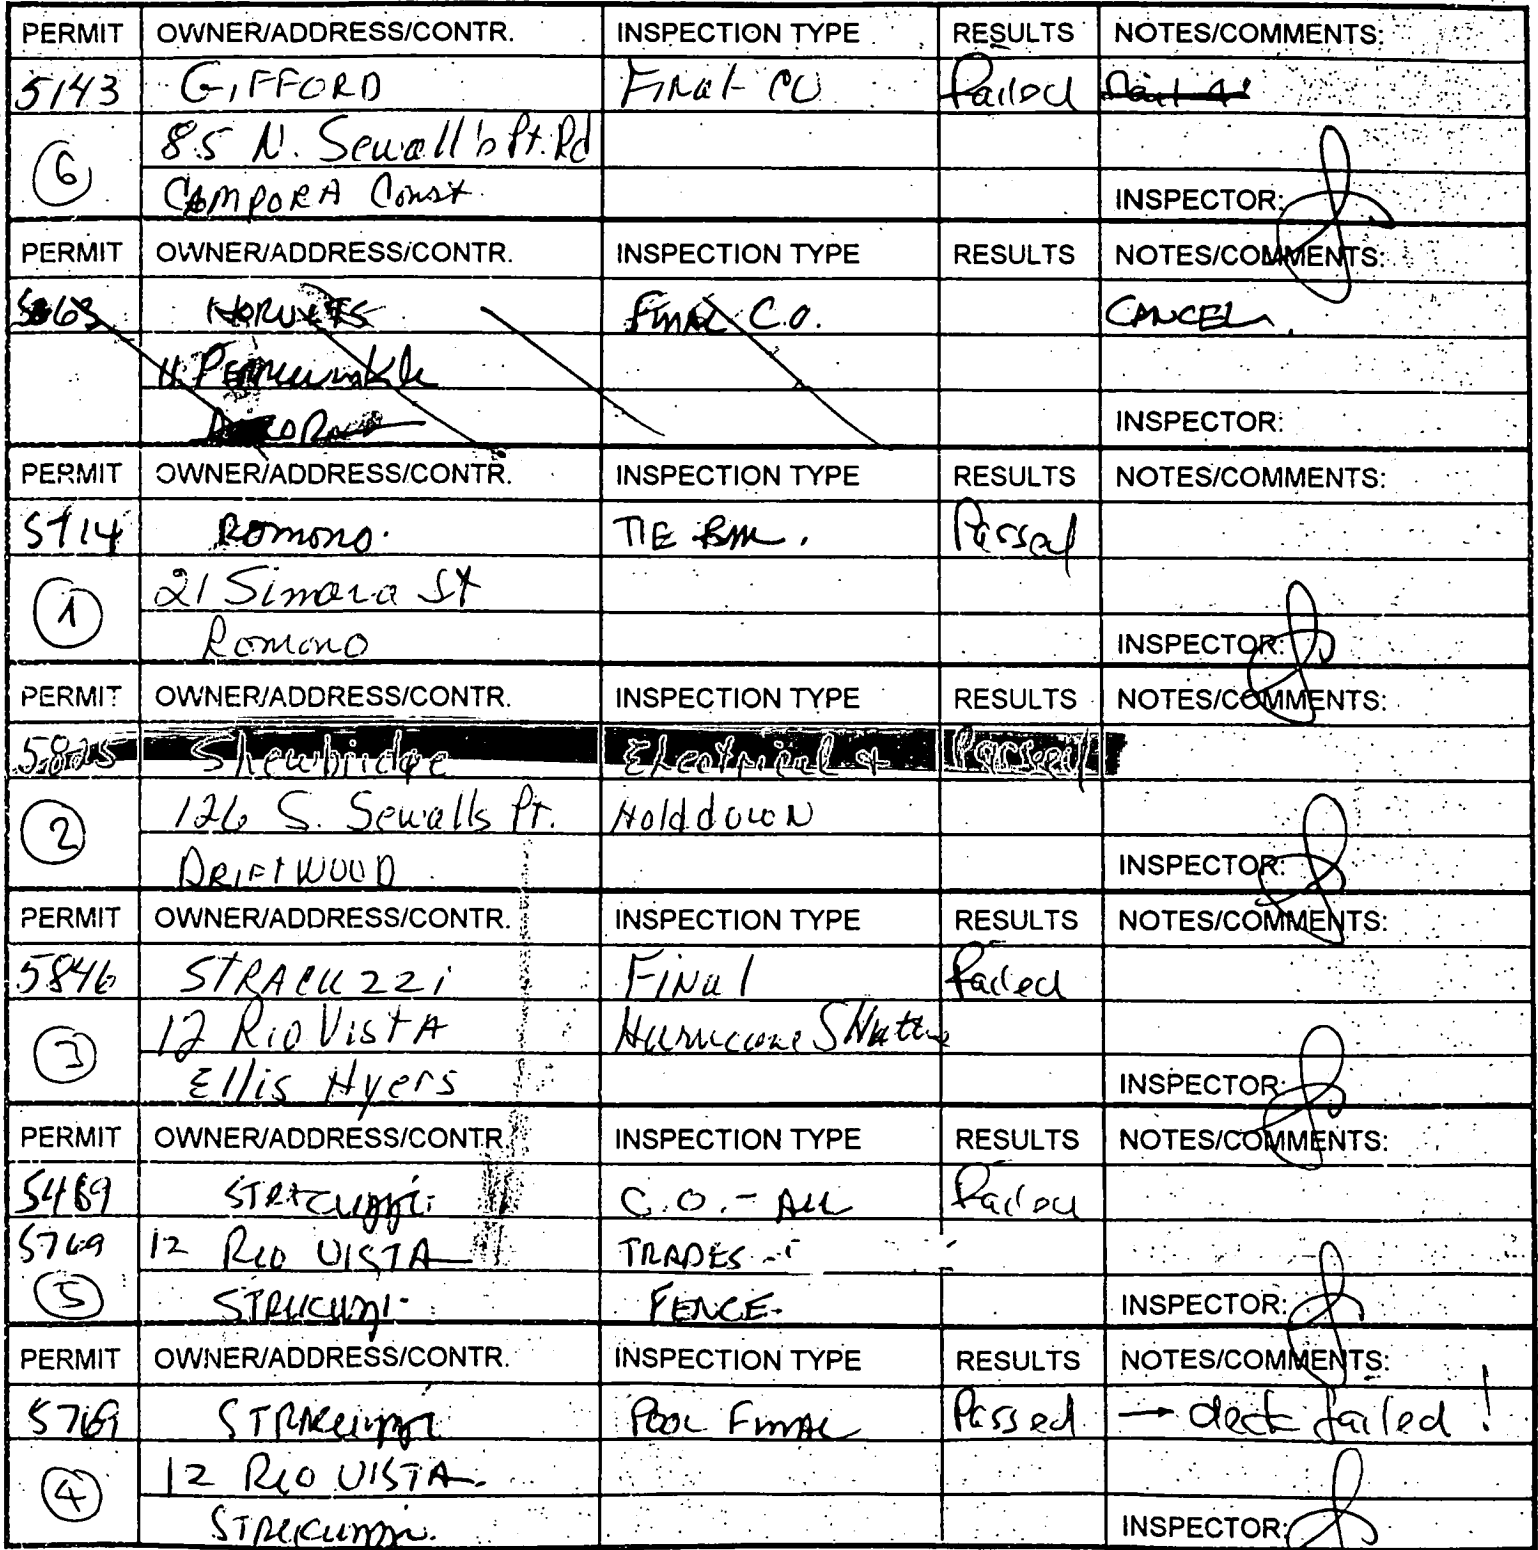 PERMIT OWNER/ADDRESS/CONTR. INSPECTION TYPE RESULTS NOTES/COMMENTS:
5143 GIFFORD Final CO Failed
85 N. Sewall's Pt. Rd
6
CAMPORA Const. INSPECTOR:
PERMIT OWNER/ADDRESS/CONTR. INSPECTION TYPE RESULTS NOTES/COMMENTS:
FINAL C.O. CANCEL
11 Perriwinkle
INSPECTOR:
PERMIT OWNER/ADDRESS/CONTR. INSPECTION TYPE RESULTS NOTES/COMMENTS:
5714 Romono. TIE BM. Passed
21 Simara St
1
Romono INSPECTOR:
PERMIT OWNER/ADDRESS/CONTR. INSPECTION TYPE RESULTS NOTES/COMMENTS:
5825 Shewbridge Electrical & Passed
126 S. Sewalls Pt. Holddown
2
DRIFTWOOD INSPECTOR:
PERMIT OWNER/ADDRESS/CONTR. INSPECTION TYPE RESULTS NOTES/COMMENTS:
5846 STRACUZZi FiNal Failed
12 Rio VistA Hurricane SHutte
3
Ellis Hyers INSPECTOR:
PERMIT OWNER/ADDRESS/CONTR. INSPECTION TYPE RESULTS NOTES/COMMENTS:
5489 STRACUZZI C.O. - ALL Failed
5769 12 RIO VISTA TRADES -
5 STRACUZZI FENCE. INSPECTOR:
PERMIT OWNER/ADDRESS/CONTR. INSPECTION TYPE RESULTS NOTES/COMMENTS:
5769 STRACUZZI POOL FINAL Passed → deck failed !
12 RIO VISTA.
4
STRACUZZI. INSPECTOR: